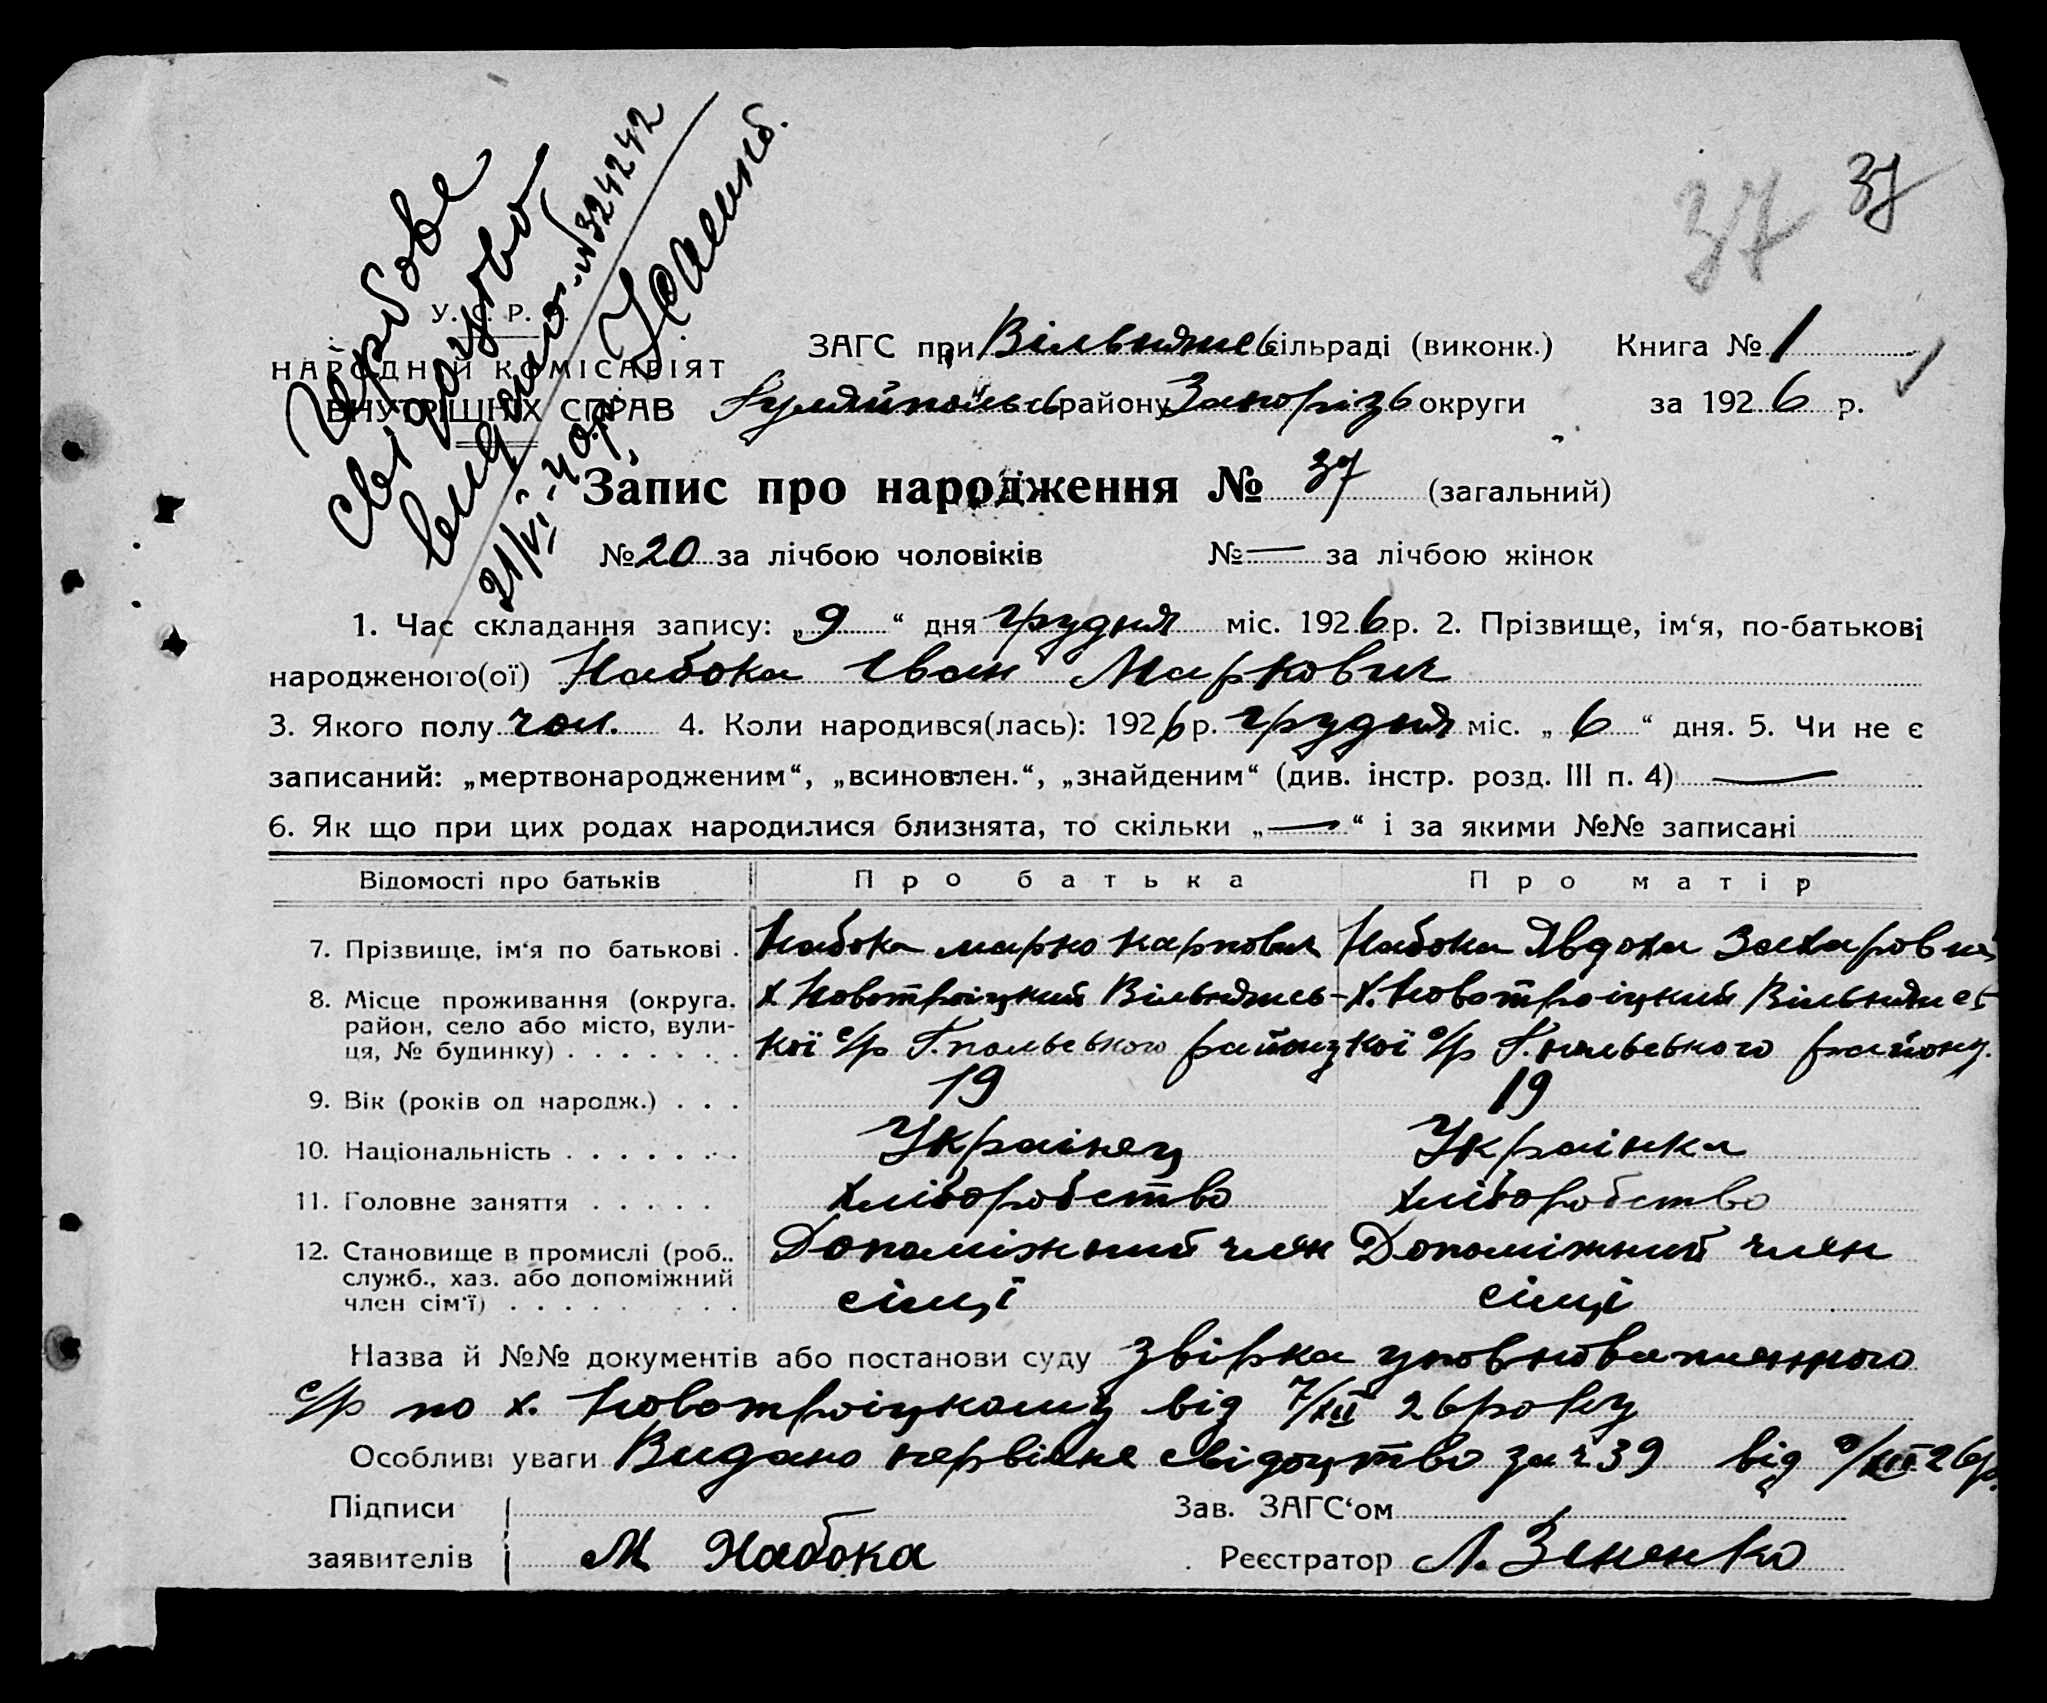 Гербове
свідоцтво
видано №324242
21/VI-40 р.
37 37
У. С. Р. Р.
НАРОДНІЙ КОМІСАРІЯТ
ВНУТРІШНІХ СПРАВ
ЗАГС при Вільнянсь сільраді (виконк.) Книга № 1
Гуляйпільсь району Запорізь округи за 1926 р.
Запис про народження № 37 (загальний)
№ 20 за лічбою чоловіків № — за лічбою жінок
1. Час складання запису: „9“ дня грудня міс. 1926 р. 2. Прізвище, ім‘я, по-батькові
народженого(ої) Набока Іван Маркович
3. Якого полу чол. 4. Коли народився(лась): 1926 р. грудня міс. „6“ дня. 5. Чи не є
записаний: „мертвонародженим“, „всиновлен.“, „знайденим“ (див. інстр. розд. III п. 4) —
6. Як що при цих родах народилися близнята, то скільки „—“ і за якими №№ записані
Відомості про батьків Про батька Про матір
7. Прізвище, ім‘я по батькові . Набока Марко Карпович Набока Явдоха Захаровна
8. Місце проживання (округа, х Новотроіцкий Вільнянсь- х. Новотроіцкий Вільнянсь-
район, село або місто, вули-
ця, № будинку) . . . . . . . кої с/р Г.польського району кої с/р Г.польського району.
9. Вік (років од народж.) . . . 19 19
10. Національність . . . . . . . Украінец Украінка
11. Головне заняття . . . . . хліборобство хліборобство
12. Становище в промислі (роб., Допоміжний член Допоміжний член
служб., хаз. або допоміжний
член сім‘ї) . . . . . . . . . сімці сімці
Назва й №№ документів або постанови суду звірка уповноваженного
с/р по х. Новотроіцкому від 7/XII 26 року
Особливі уваги Видано первісне свідоцтво за ч 39 від 9/XII 26 р.
Підписи Зав. ЗАГС‘ом
заявителів М Набока Реєстратор Л. Зененко